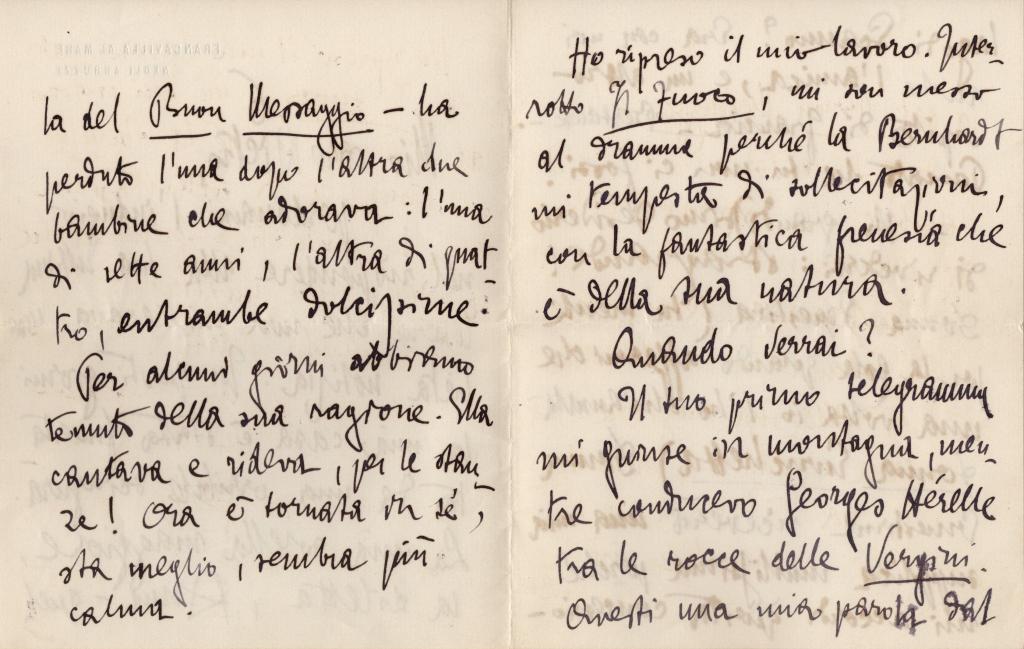 la del Buon Messaggio – ha
perduto l'una dopo l'altra due
bambine che adorava: l'una
di sette anni, l'altra di quat
tro, entrambe dolcissime.
Per alcuni giorni abbiamo
temuto della sua ragione. Ella
cantava e rideva, per le stan-
ze! Ora è tornata in sé,
sta meglio, sembra più
calma.
Ho ripreso il mio lavoro. Inter-
rotto Il Fuoco, mi son messo
al dramma perché la Bernhardt
mi tempesta di sollecitazioni,
con la fantastica frenesia che
è della sua natura.
Quando verrai?
Il tuo primo telegramma
mi giunse in montagna, men-
tre conducevo Georges Hérelle
tra le rocce delle Vergini.
Avesti una mia parola dal